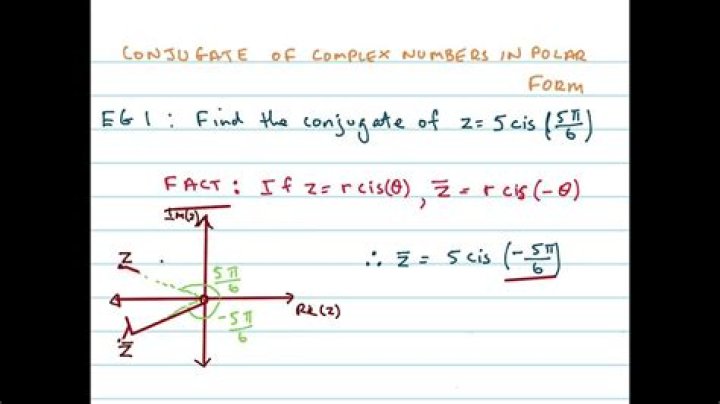 CONJUGATE OF COMPLEX NUMBERS IN POLAR
FORM
EG 1 : Find the conjugate of z = 5 cis (5π/6)
FACT : If z = r cis(θ), z̅ = r cis(-θ)
Im(z)
∴ z̅ = 5 cis (-5π/6)
z
5π/6
Re(z)
-5π/6
z̅